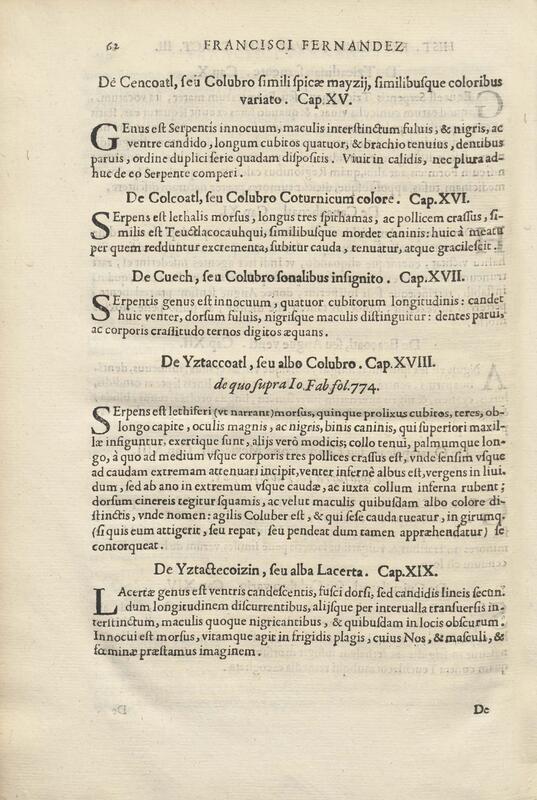 62 FRANCISCI FERNANDEZ
De Cencoatl, seu Colubro simili spicæ mayzij, similibusque coloribus
variato. Cap. XV.
GEnus est Serpentis innocuum, maculis interstinctum fuluis, & nigris, ac
ventre candido, longum cubitos quatuor, & brachio tenuius, dentibus
paruis, ordine duplici serie quadam dispositis. Viuit in calidis, nec plura ad-
huc de eo Serpente comperi.
De Colcoatl, seu Colubro Coturnicum colore. Cap. XVI.
SErpens est lethalis morsus, longus tres spithamas, ac pollicem crassus, si-
milis est Teuctlacocauhqui, similibusque mordet caninis: huic à meatu
per quem redduntur excrementa, subitur cauda, tenuatur, atque gracilescit.
De Cuech, seu Colubro sonalibus insignito. Cap. XVII.
SErpentis genus est innocuum, quatuor cubitorum longitudinis: candet
huic venter, dorsum fuluis, nigrisque maculis distinguitur: dentes paruis,
ac corporis crassitudo ternos digitos æquans.
De Yztaccoatl, seu albo Colubro. Cap. XVIII.
de quo supra Io. Fab fol. 774.
SErpens est lethiferi (vt narrant) morsus, quinque prolixus cubitos, teres, ob-
longo capite, oculis magnis, ac nigris, binis caninis, qui superiori maxil-
læ insiguntur, exertique sunt, alijs verò modicis; collo tenui, palmumque lon-
go, à quo ad medium vsque corporis tres pollices crassus est, vnde sensim vsque
ad caudam extremam attenuari incipit, venter infernè albus est, vergens in liui.
dum, sed ab ano in extremum vsque caudæ, ac iuxta collum inferna rubent;
dorsum cinereis tegitur squamis, ac velut maculis quibusdam albo colore di-
stinctis, vnde nomen: agilis Coluber est, & qui sese cauda tueatur, in girumq.
(si quis eum attigerit, seu repat, seu pendeat dum tamen appræhendatur) se
contorqueat.
De Yztactecoizin, seu alba Lacerta. Cap. XIX.
LAcertæ genus est ventris candescentis, fusci dorsi, sed candidis lineis secun.
dum longitudinem discurrentibus, alijsque per interualla transuersis in-
terstinctum, maculis quoque nigricantibus, & quibusdam in locis obscurum.
Innocui est morsus, vitamque agit in frigidis plagis, cuius Nos, & masculi, &
fœminæ præstamus imaginem.
De